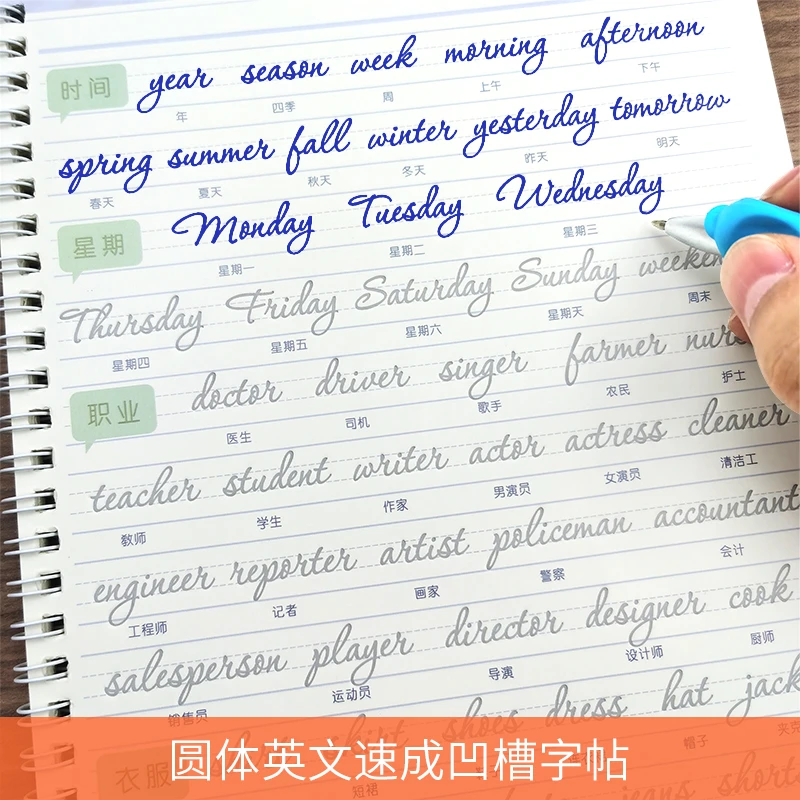 时间 year season week morning afternoon
年 四季 周 上午 下午
spring summer fall winter yesterday tomorrow
春天 夏天 秋天 冬天 昨天 明天
星期 Monday Tuesday Wednesday
星期一 星期二 星期三
Thursday Friday Saturday Sunday
星期四 星期五 星期六 星期天 周末
职业 doctor driver singer farmer
医生 司机 歌手 农民 护士
teacher student writer actor actress cleaner
教师 学生 作家 男演员 女演员 清洁工
engineer reporter artist policeman accountant
工程师 记者 画家 警察 会计
salesperson player director designer cook
销售员 运动员 导演 设计师 厨师
衣服 shirt shoes dress hat
短裙 帽子
jeans
圆体英文速成凹槽字帖